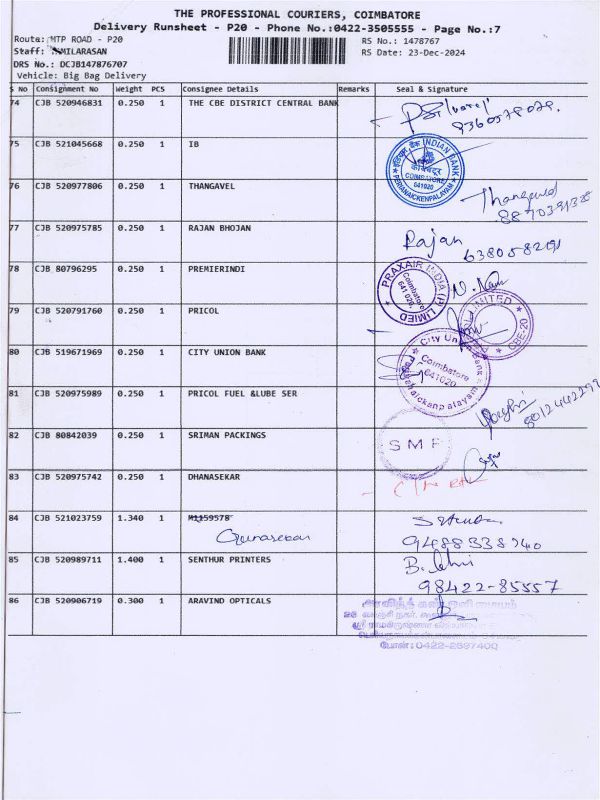 THE PROFESSIONAL COURIERS, COIMBATORE
Delivery Runsheet - P20 - Phone No.:0422-3505555 - Page No.:7
Route: MTP ROAD - P20
RS No.: 1478767
Staff: AMILARASAN
RS Date: 23-Dec-2024
DRS No.: DCJB147876707
Vehicle: Big Bag Delivery
S No Consignment No Weight PCS Consignee Details Remarks Seal & Signature
74 CJB 520946831 0.250 1 THE CBE DISTRICT CENTRAL BANK
75 CJB 521045668 0.250 1 IB
INDIAN BANK
COIMBATORE
641020
PERIANAICKENPALAYAM
76 CJB 520977806 0.250 1 THANGAVEL
Thangavel
77 CJB 520975785 0.250 1 RAJAN BHOJAN
Rajan
6380582091
78 CJB 80796295 0.250 1 PREMIERINDI
PRAXAIR INDIA (P) LIMIED
Coimbatore
641 020.
79 CJB 520791760 0.250 1 PRICOL
LIMITED
CBE-20
80 CJB 519671969 0.250 1 CITY UNION BANK
City Union Bank
Coimbatore
641020
81 CJB 520975989 0.250 1 PRICOL FUEL &LUBE SER
8012442299
82 CJB 80842039 0.250 1 SRIMAN PACKINGS
SMF
83 CJB 520975742 0.250 1 DHANASEKAR
84 CJB 521023759 1.340 1 M1159578
Gunasekar
9488338740
85 CJB 520989711 1.400 1 SENTHUR PRINTERS
98422-85557
86 CJB 520906719 0.300 1 ARAVIND OPTICALS
போன்: 0422-2697400